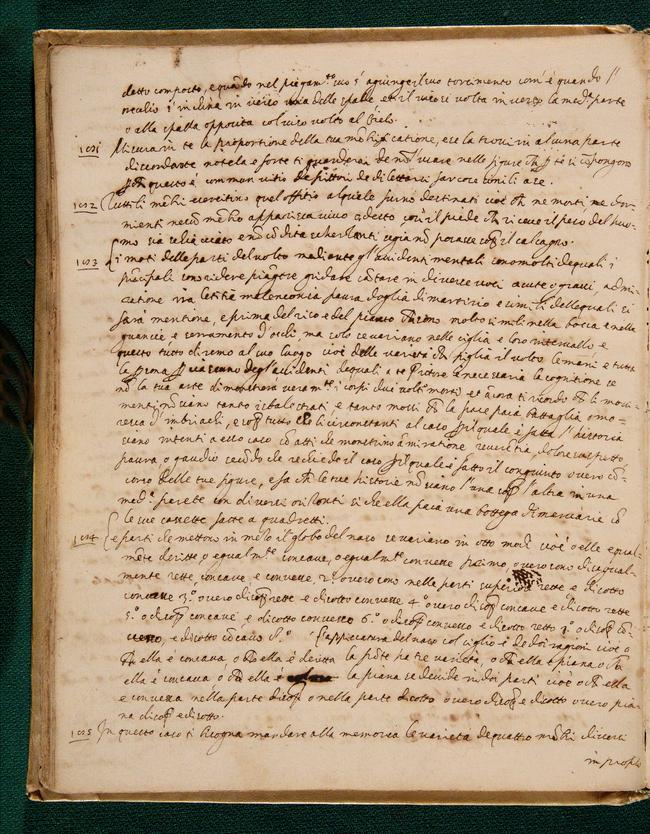 detto composto, e quando nel piegam.to suo s'agiunge il suo torcimento com'è quando l'
occhio s'inclina in verso una delle spalle, et il viso si volta in verso la med.a parte
o alla spalla opposita col viso volto al Cielo.
Misura in te la proportione della tua membrificatione, e se la trovi in alcuna parte
discordante notela e forte ti guarderai de non l'usare nelle figure che per te si compongono
perché questo è commun vitio de pittori de dilettarsi far cose simili a se.
102 Tutti li membri esercitino quel offitio al quale furno destinati cioè che ne morti ne dor-
mienti nessun membro apparisca vivo o desto così il piede che riceve il peso del huo-
mo sia schiacciato e non con dita scherzanti se già non posasse sopra il calcagno.
103 i moti delle parti del volto mediante gl'accidenti mentali sono molti de quali i
principali sono ridere piangere gridare cantare in diverse voci acute o gravi, admi-
ratione ira letitia malenconia paura doglia di martirio e simili delle quali si
farà mentione, e prima del riso e del pianto che sono molto simili nella bocca e nelle
guancie e serramento d'occhi, ma solo se variano nelle ciglia e loro intervallo e
questo tutto diremo al suo luogo cioè delle varietà che piglia il volto le mani e tutta
la persona per ciascuno degl'accidenti de quali a te Pittore è necessaria la cognitione se
non la tua arte dimostrerà veram.te i corpi due volte morti et ancora ti ricordo che li movi-
menti non siano tanto sbalestrati, e tanto mossi che la pace paia battaglia o mo-
resca d'imbriachi, e sopra tutto che li circonstanti al caso per il quale è fatta l'historia
siano intenti a esso caso con atti che mostrino amiratione reverentia, dolore sospetto
paura o gaudio secondo che richiede il caso per il quale è fatto il congiunto overo con-
corso delle tue figure, e fa che le tue historie non siano l'una sopra l'altra in una
med.a parete con diversi orizonti si che ella paia una bottega di merciarie con
le sue cassette fatte a quadretti.
104 e parti che mettono in mezo il globo del naso se variano in otto modi cioè o elle equal-
mente deritte, o egualm.te concave, o egualm.te convesse primo overo sono disequal-
mente rette concave, e convesse 2.o overo sono nelle parti superiori rette e di sotto
convesse 3.o overo di sopra rette e di sotto convesse 4.o overo di sopra concave e di sotto rette
5.o o di sopra concave e di sotto convesso 6.o o di sopra convesso e di sotto retto 7.o o di sopra con-
vesso, e di sotto concavo 8.o L'appiccatura del naso col ciglio è de doi ragioni cioè o
che ella è concava, o che ella è deritta la fronte ha tre varietà, o ch'ella è piana, o che
ella è concava o che ella è la piana se devide in doi parti cioè o che ella
e convessa nella parte di sopra o nella parte di sotto overo di sopra e di sotto overo pia-
na di sopra e di sotto.
105 In questo caso ti bisogna mandare alla memoria le varietà de quattro membri diversi
in profilo